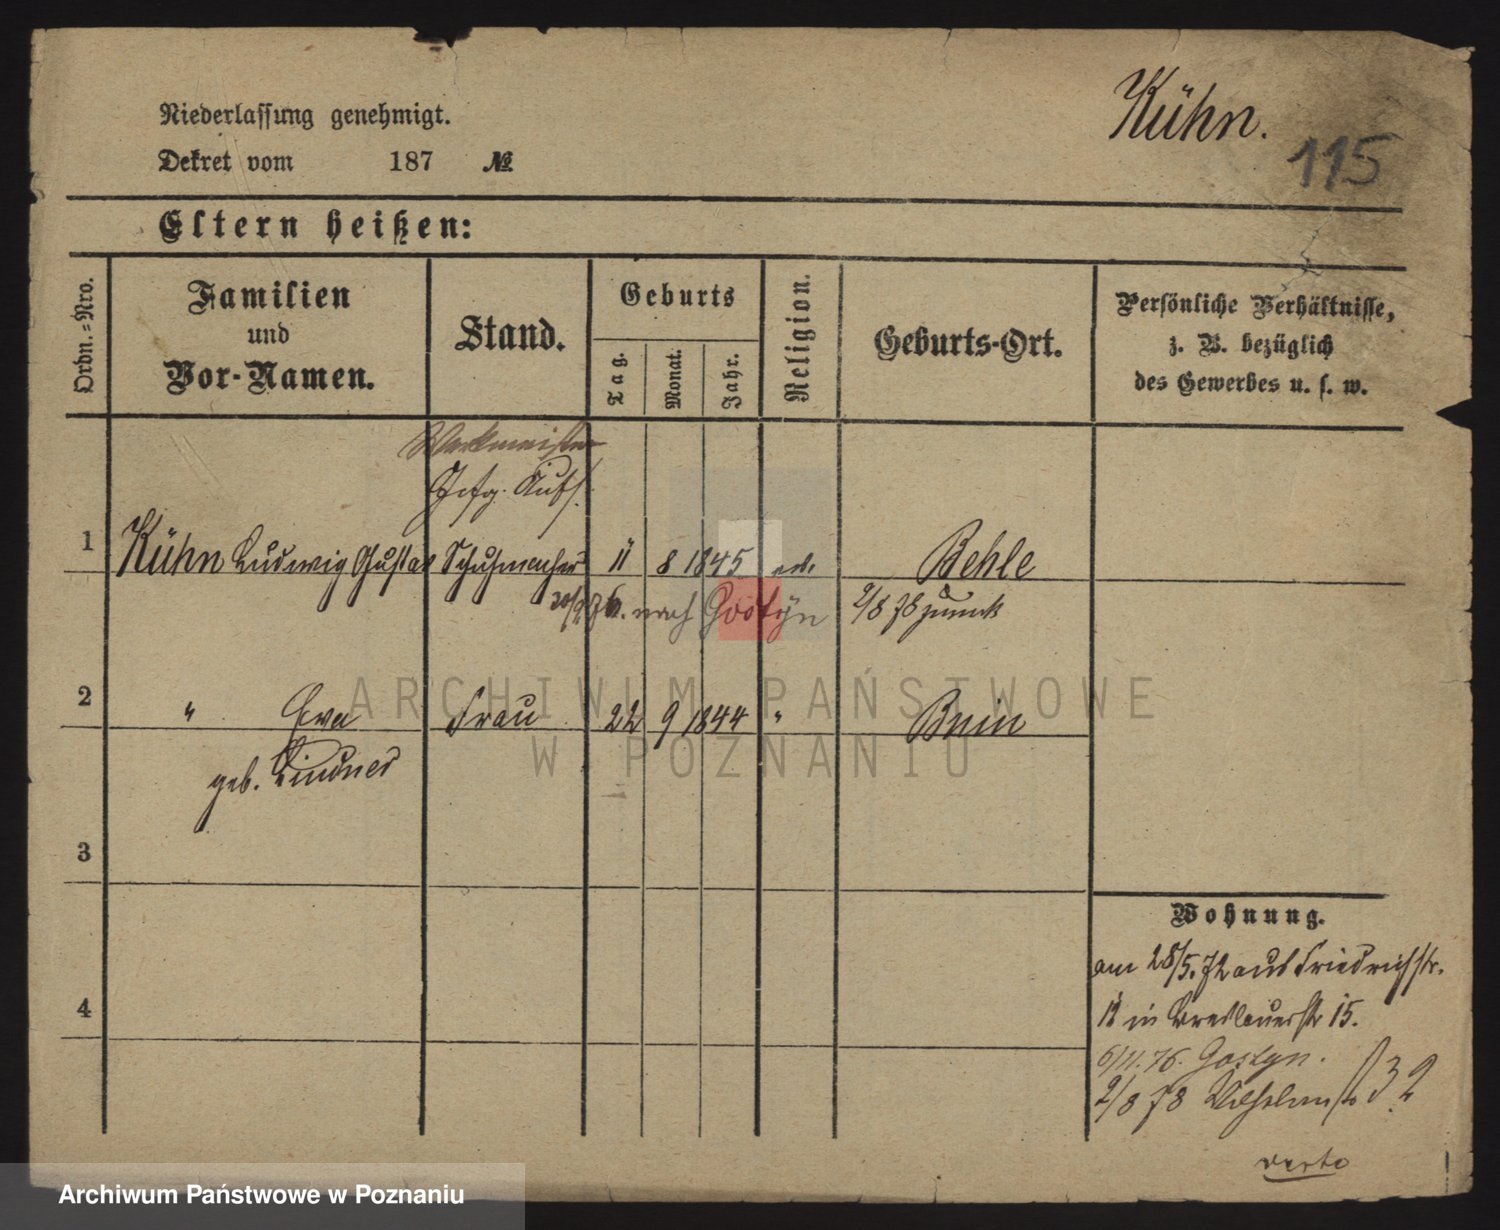 Kühn.
115
Niederlassung genehmigt.
Dekret vom 187 №
Eltern heißen:
Ordn.-Nro.
Familien
und
Vor-Namen.
Stand.
Geburts
Tag.
Monat.
Jahr.
Religion.
Geburts-Ort.
Persönliche Verhältnisse,
z. B. bezüglich
des Gewerbes u. s. w.
Werkmeister
1 Kühn Ludwig Gustav Schuhmacher 11 8 1845 ev. Behle
nach Gostyn 2/8 78 zurück
2 " Eva Frau 22 9 1844 " Bnin
geb. Lindner
3
4
Wohnung.
am 28/5.72 aus Friedrichstr.
11 in Breslauerstr 15.
6/11.76. Gostyn.
2/8 78 Wilhelmstr
verte
ARCHIWUM PAŃSTWOWE
W POZNANIU
Archiwum Państwowe w Poznaniu